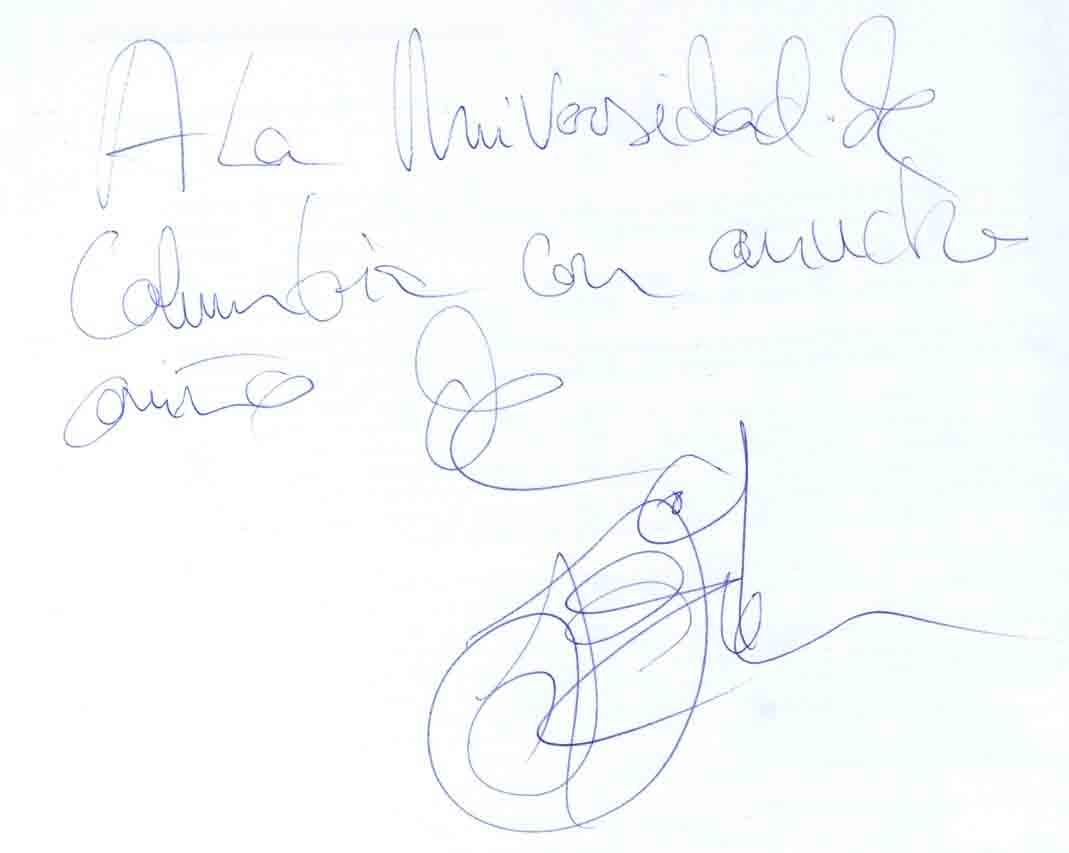 A La Universidad de
Columbia con mucho
cariño de